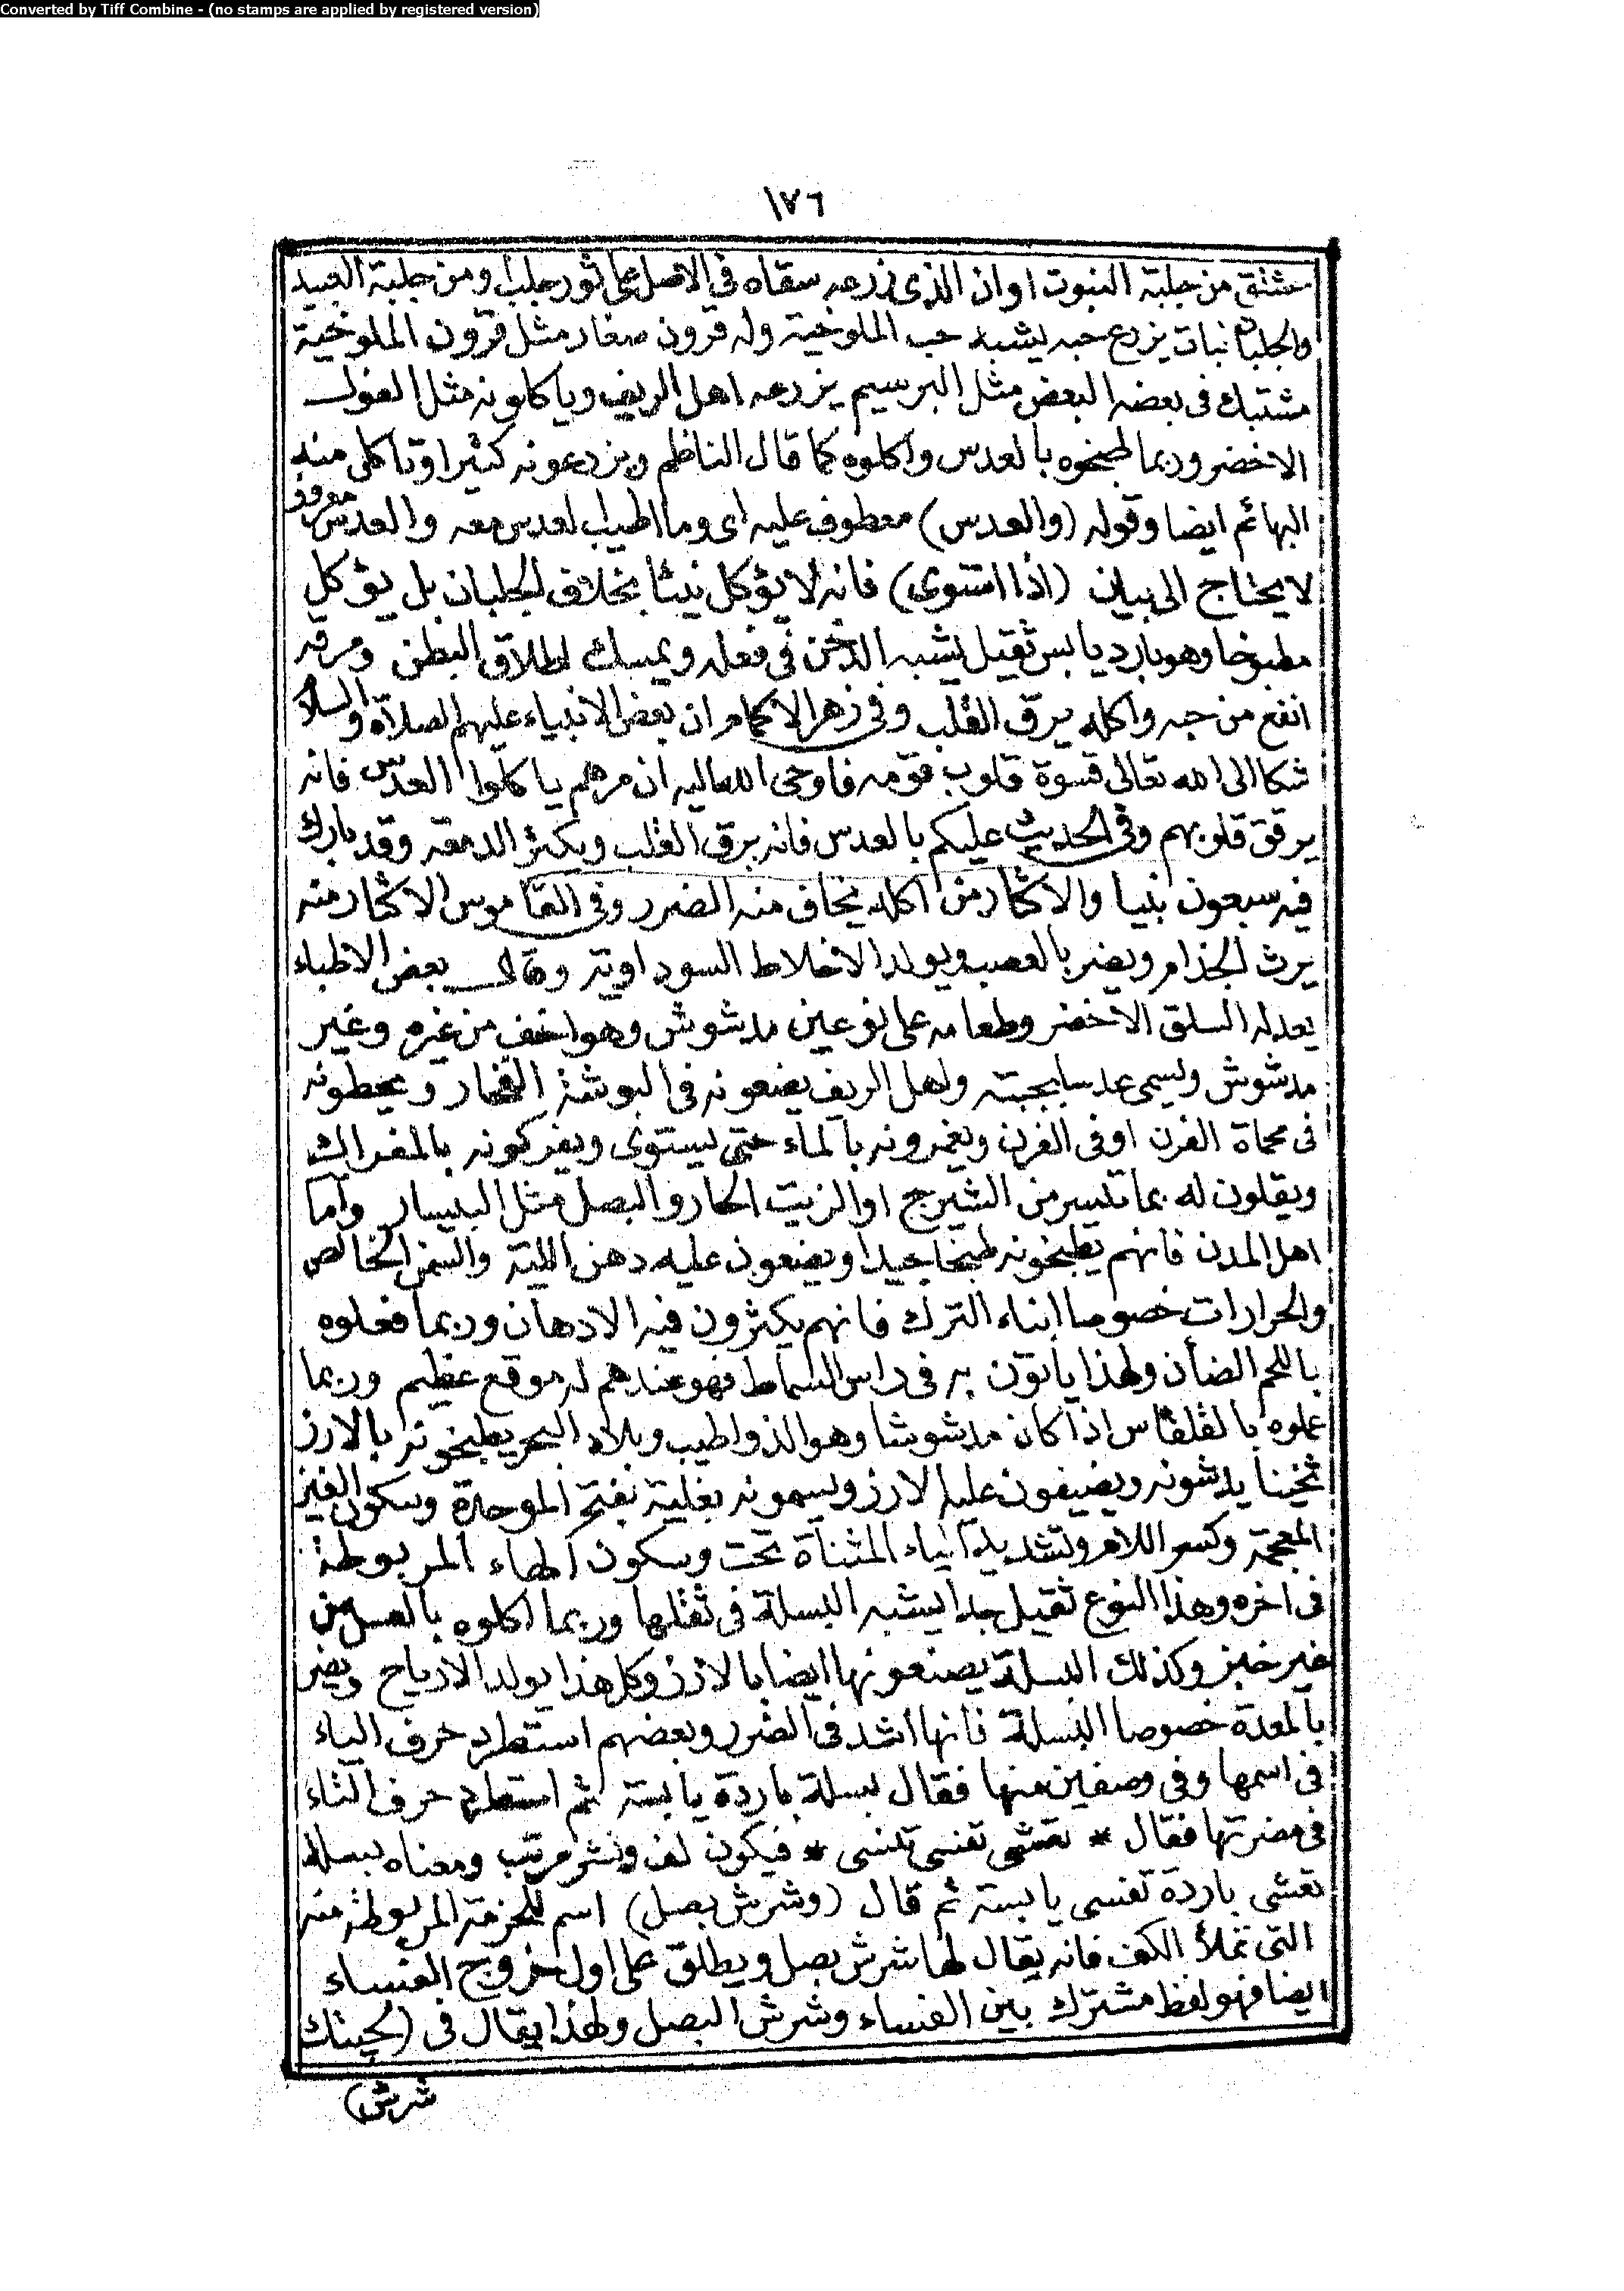 Converted by Tiff Combine - (no stamps are applied by registered version)
١٧٦
مشتق من جلبة النبوت او ان الذى زرعه سقاه فى الاصل على ثور جلب او من جلبة العبيد
والجلبان نبات يزرع حبه يشبه حب الملوخية وله قرون صغار مثل قرون الملوخية
مشتبك فى بعضه البعض مثل البرسيم يزرعه اهل الريف وياكلونه مثل الفول
الاخضر وربما طبخوه بالعدس واكلوه كما قال الناظم ويزرعونه كثيرا وتاكل منه
البهائم ايضا وقوله (والعدس) معطوف عليه اى وما اطيب العدس معه والعدس معروف
لا يحتاج الى بيان (اذا استوى) فانه لا يؤكل نيئا بخلاف الجلبان بل يؤكل
مطبوخا وهو بارد يابس ثقيل يشبه الدخن فى فعله ويمسك اطلاق البطن ومرقه
انفع من جبه واكله يرق القلب وفى زهر الاكمام ان بعض الانبياء عليهم الصلاة والسلام
شكا الى الله تعالى قسوة قلوب قومه فاوحى الله اليه ان مرهم ياكلوا العدس فانه
يرقق قلوبهم وفى الحديث عليكم بالعدس فانه يرق القلب ويكثر الدمعة وقد بارك
فيه سبعون نبيا والاكثار من اكله يخاف منه الضرر وفى القاموس الاكثار منه
يرث الجذام ويضر بالعصب ويولد الاخلاط السوداوية وقال بعض الاطباء
يعدله السلق الاخضر وطعامه على نوعين مدشوش وهو اخف من غيره وغير
مدشوش ويسمى عدسا بجبته واهل الريف يضعونه فى البوشة الفخار ويحطونه
فى محماة الفرن او فى الفرن ويغمرونه بالماء حتى يستوى ويفركونه بالمفراك
ويقلون له بما تيسر من الشيرج او الزيت الحار والبصل مثل البيسار واما
اهل المدن فانهم يطبخونه طبخا جيدا ويضعون عليه دهن اللية والسمن الخالص
والحرارات خصوصا ابناء الترك فانهم يكثرون فيه الادهان وربما فعلوه
باللحم الضأن ولهذا ياتون به فى راس السماط فهو عندهم له موقع عظيم وربما
عملوه بالقلقاس اذا كان مدشوشا وهو الذ واطيب وبلاد البحر يطبخونه بالارز
ثخينا يدشونه ويضيفون عليه الارز ويسمونه بغلية بفتح الموحدة وسكون الغين
المعجمة وكسر اللام وتشديد الياء المثناة تحت وسكون الهاء المربوطة
فى اخره وهذا النوع ثقيل جدا يشبه البسلة فى ثقلها وربما اكلوه بالعسل من
غير خبز وكذلك البسلة يصنعونها ايضا بالارز وكل هذا يولد الارياح ويضر
بالمعدة خصوصا البسلة فانها اشد فى الضرر وبعضهم استطرد حرف الباء
فى اسمها وفى وصفين منها فقال بسلة باردة يابسة ثم استطرد حرف التاء
فى مضرتها فقال * تعشى تفسى تنسى * فيكون لف ونشر مرتب ومعناه بسلة
تعشى باردة تفسى يابسة ثم قال (وشرش بصل) اسم للحزمة المربوطة منه
التى تملأ الكف فانه يقال لها شرش بصل ويطلق على اول خروج الفساء
ايضا فهو لفظ مشترك بين الفساء وشرش البصل ولهذا يقال فى (لحيتك
شرش)